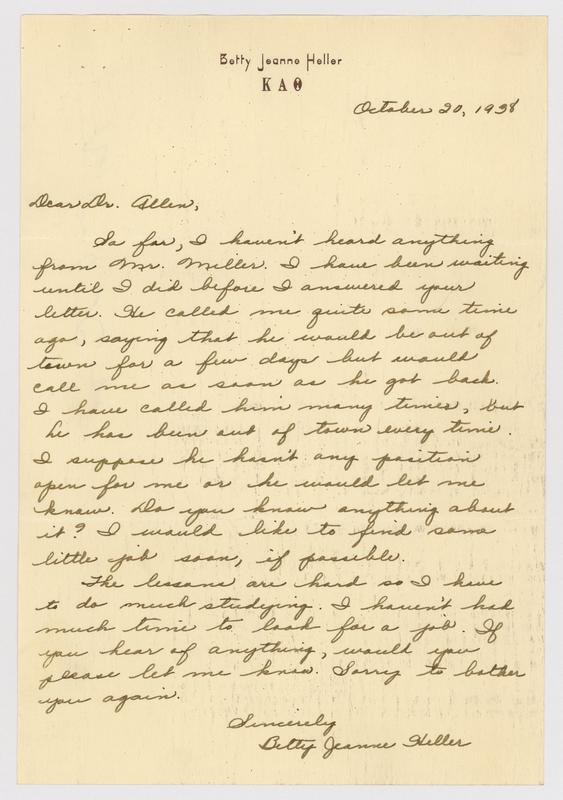 Betty Jeanne Heller
ΚΑΘ
October 20, 1938
Dear Dr. Allen,
So far, I haven't heard anything
from Mr. Miller. I have been waiting
until I did before I answered your
letter. He called me quite some time
ago, saying that he would be out of
town for a few days but would
call me as soon as he got back.
I have called him many times, but
he has been out of town every time.
I suppose he hasn't any position
open for me or he would let me
know. Do you know anything about
it? I would like to find some
little job soon, if possible.
The lessons are hard so I have
to do much studying. I haven't had
much time to look for a job. If
you hear of anything, would you
please let me know. Sorry to bother
you again.
Sincerely
Betty Jeanne Heller